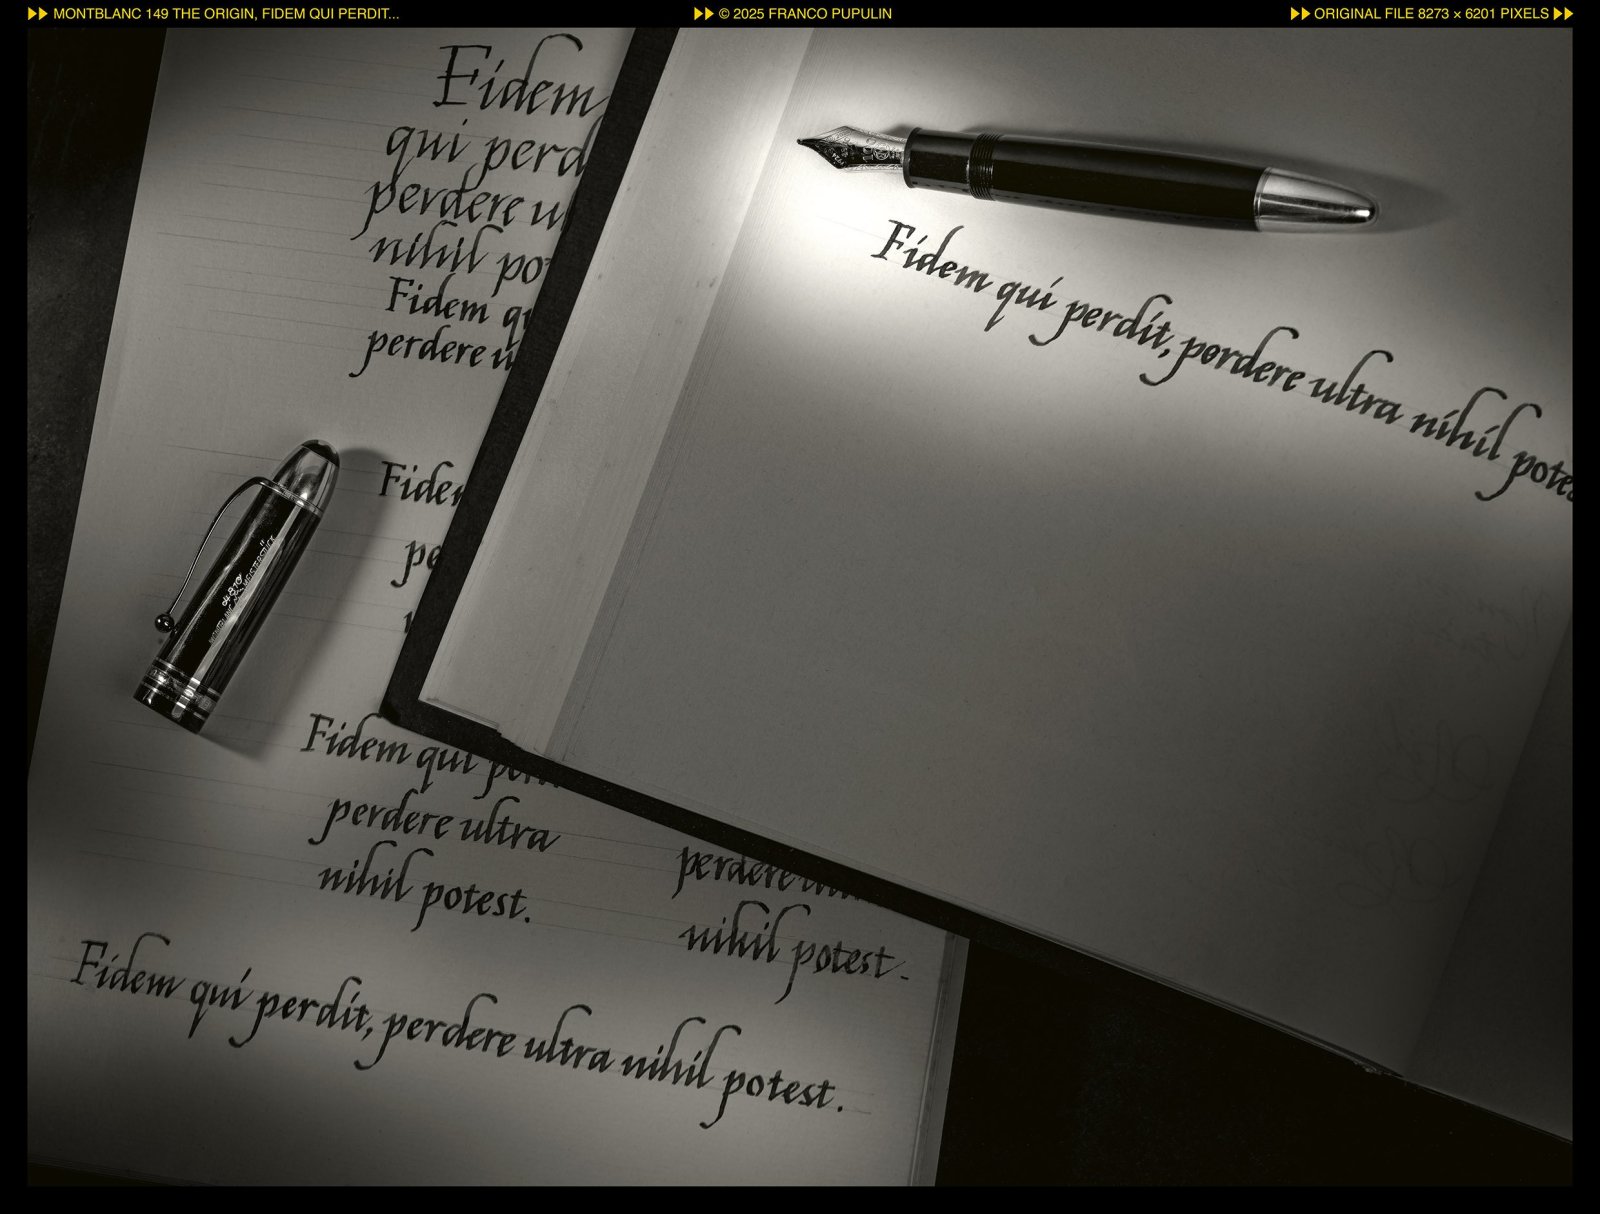 MONTBLANC 149 THE ORIGIN, FIDEM QUI PERDIT...
© 2025 FRANCO PUPULIN
ORIGINAL FILE 8273 × 6201 PIXELS
Fidem
qui perd
perdere u
nihil po
Fidem qu
perdere u
Fidem
pe
Fidem qui
perdere ultra
nihil potest.
perdere
nihil potest.
Fidem qui perdit, perdere ultra nihil potest.
Fidem qui perdit, pordere ultra nihil potes
4810
MEISTERSTÜCK